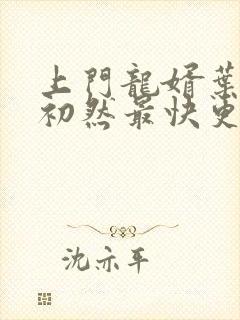 上門龍婿葉
初然最快更
沈亦平